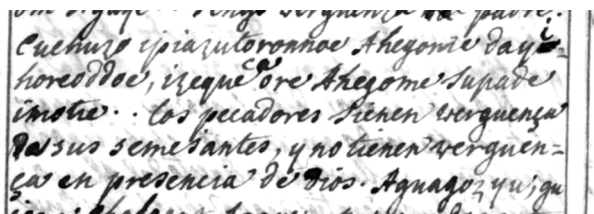 tengo verguenza padre.
Cuenuzo ipiazutoronnoe Ahegome dayi=
horeoddoe, izequecaore Ahegome Supade
imotie.. los pecadores tienen verguença
de sus semejantes, y no tienen verguen=
ça en presencia de Dios. Aguagozyu; gu